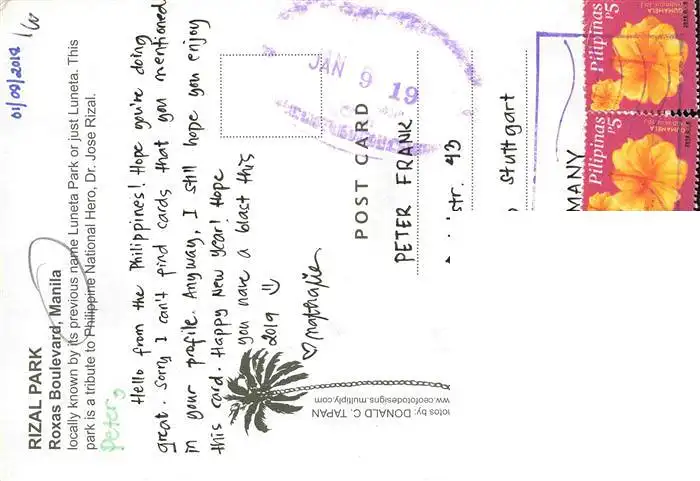 RIZAL PARK
Roxas Boulevard, Manila
locally known by its previous name Luneta Park or just Luneta. This
park is a tribute to Philippine National Hero, Dr. Jose Rizal.
01/09/2019
Peter,
Hello from the Philippines! Hope you're doing
great. Sorry I can't find cards that you mentioned
in your profile. Anyway, I still hope you enjoy
this card. Happy New Year! Hope
you have a blast this
2019
nathalie
JAN 9 19
POST CARD
PETER FRANK
str. 43
Stuttgart
MANY
Pilipinas
P5
GUMAMELA
Pilipinas
P5
GUMAMELA
lotos by: DONALD C. TAPAN
ww.ceofotodesigns.multiply.com